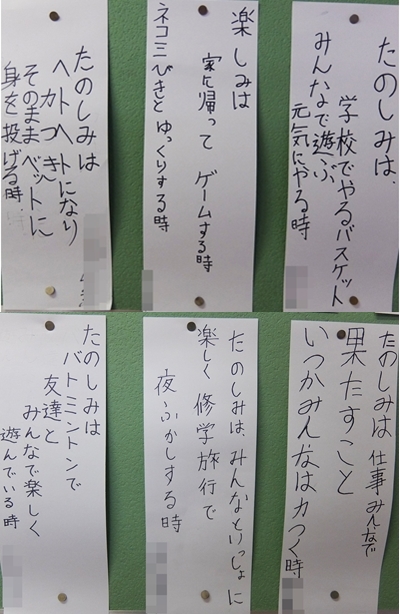 たのしみは、
学校でやるバスケット
みんなで遊ぶ
元気にやる時
楽しみは
家に帰って ゲームする時
ネコ三びきとゆっくりする時
たのしみは
ヘトヘトになり
力つき
そのままベットに
身を投げる時
たのしみは 仕事みんなで
果たすこと
いつかみんなは力つく時
たのしみは、みんなといっしょに
楽しく 修学旅行で
夜ふかしする時
たのしみは
バトミントンで
友達と
みんなで楽しく
遊んでいる時